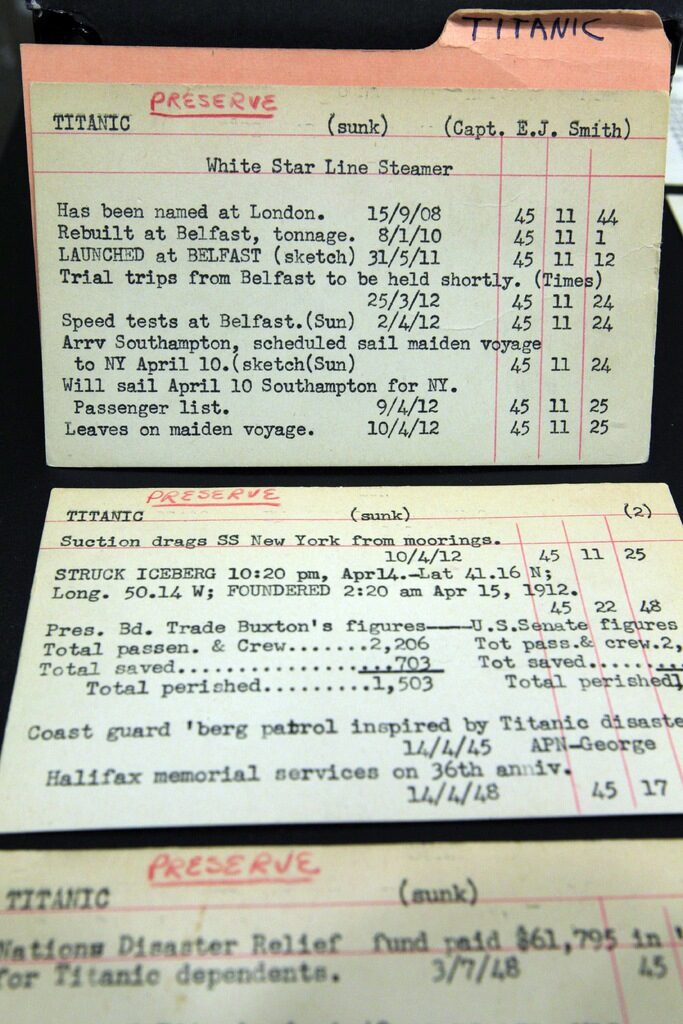 TITANIC
PRESERVE
TITANIC (sunk) (Capt. E.J. Smith)
White Star Line Steamer
Has been named at London. 15/9/08 45 11 44
Rebuilt at Belfast, tonnage. 8/1/10 45 11 1
LAUNCHED at BELFAST (sketch) 31/5/11 45 11 12
Trial trips from Belfast to be held shortly. (Times)
25/3/12 45 11 24
Speed tests at Belfast.(Sun) 2/4/12 45 11 24
Arrv Southampton, scheduled sail maiden voyage
to NY April 10.(sketch(Sun) 45 11 24
Will sail April 10 Southampton for NY.
Passenger list. 9/4/12 45 11 25
Leaves on maiden voyage. 10/4/12 45 11 25
PRESERVE
TITANIC (sunk) (2)
Suction drags SS New York from moorings.
10/4/12 45 11 25
STRUCK ICEBERG 10:20 pm, Apr14.-Lat 41.16 N;
Long. 50.14 W; FOUNDERED 2:20 am Apr 15, 1912.
45 22 48
Pres. Bd. Trade Buxton's figures----U.S.Senate figures
Total passen. & Crew.......2,206 Tot pass.& crew.2,
Total saved.................703 Tot saved.........
Total perished.........1,503 Total perished1,
Coast guard 'berg patrol inspired by Titanic disaste
14/4/45 APN-George
Halifax memorial services on 36th anniv.
14/4/48 45 17
PRESERVE
TITANIC (sunk)
Nations Disaster Relief fund paid $61,795 in '
for Titanic dependents. 3/7/48 45